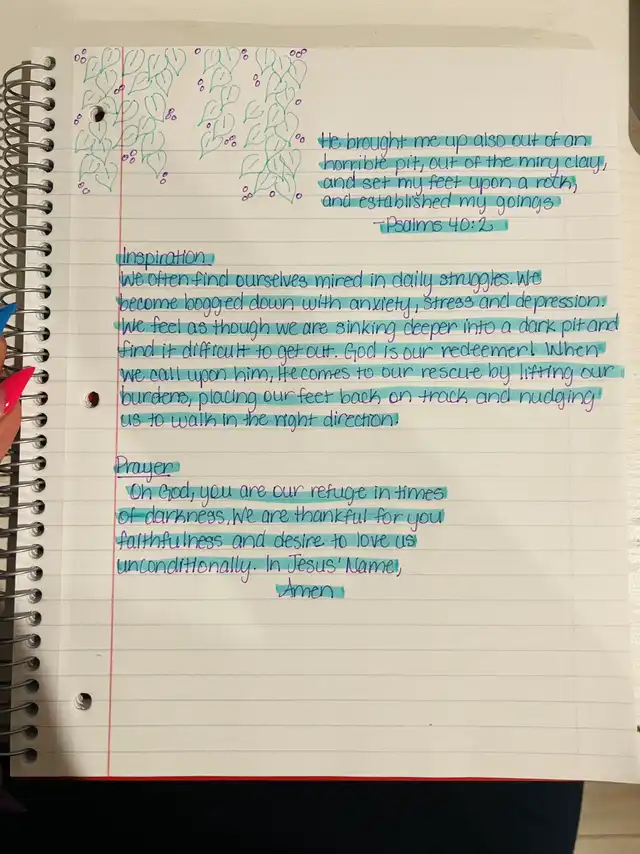 He brought me up also out of an
horrible pit, out of the miry clay,
and set my feet upon a rock,
and established my goings
-Psalms 40:2
Inspiration
We often find ourselves mired in daily struggles. We
become bogged down with anxiety, stress and depression.
We feel as though we are sinking deeper into a dark pit and
find it difficult to get out. God is our redeemer! When
we call upon him, He comes to our rescue by lifting our
burdens, placing our feet back on track and nudging
us to walk in the right direction.
Prayer
Oh God, you are our refuge in times
of darkness. We are thankful for you
faithfulness and desire to love us
unconditionally. In Jesus' Name,
Amen